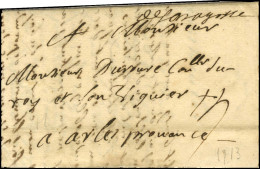 de Saragosse
A Monsieur
Monsieur Durrure Con.er du
roy et son viguier
a arles provance
1713